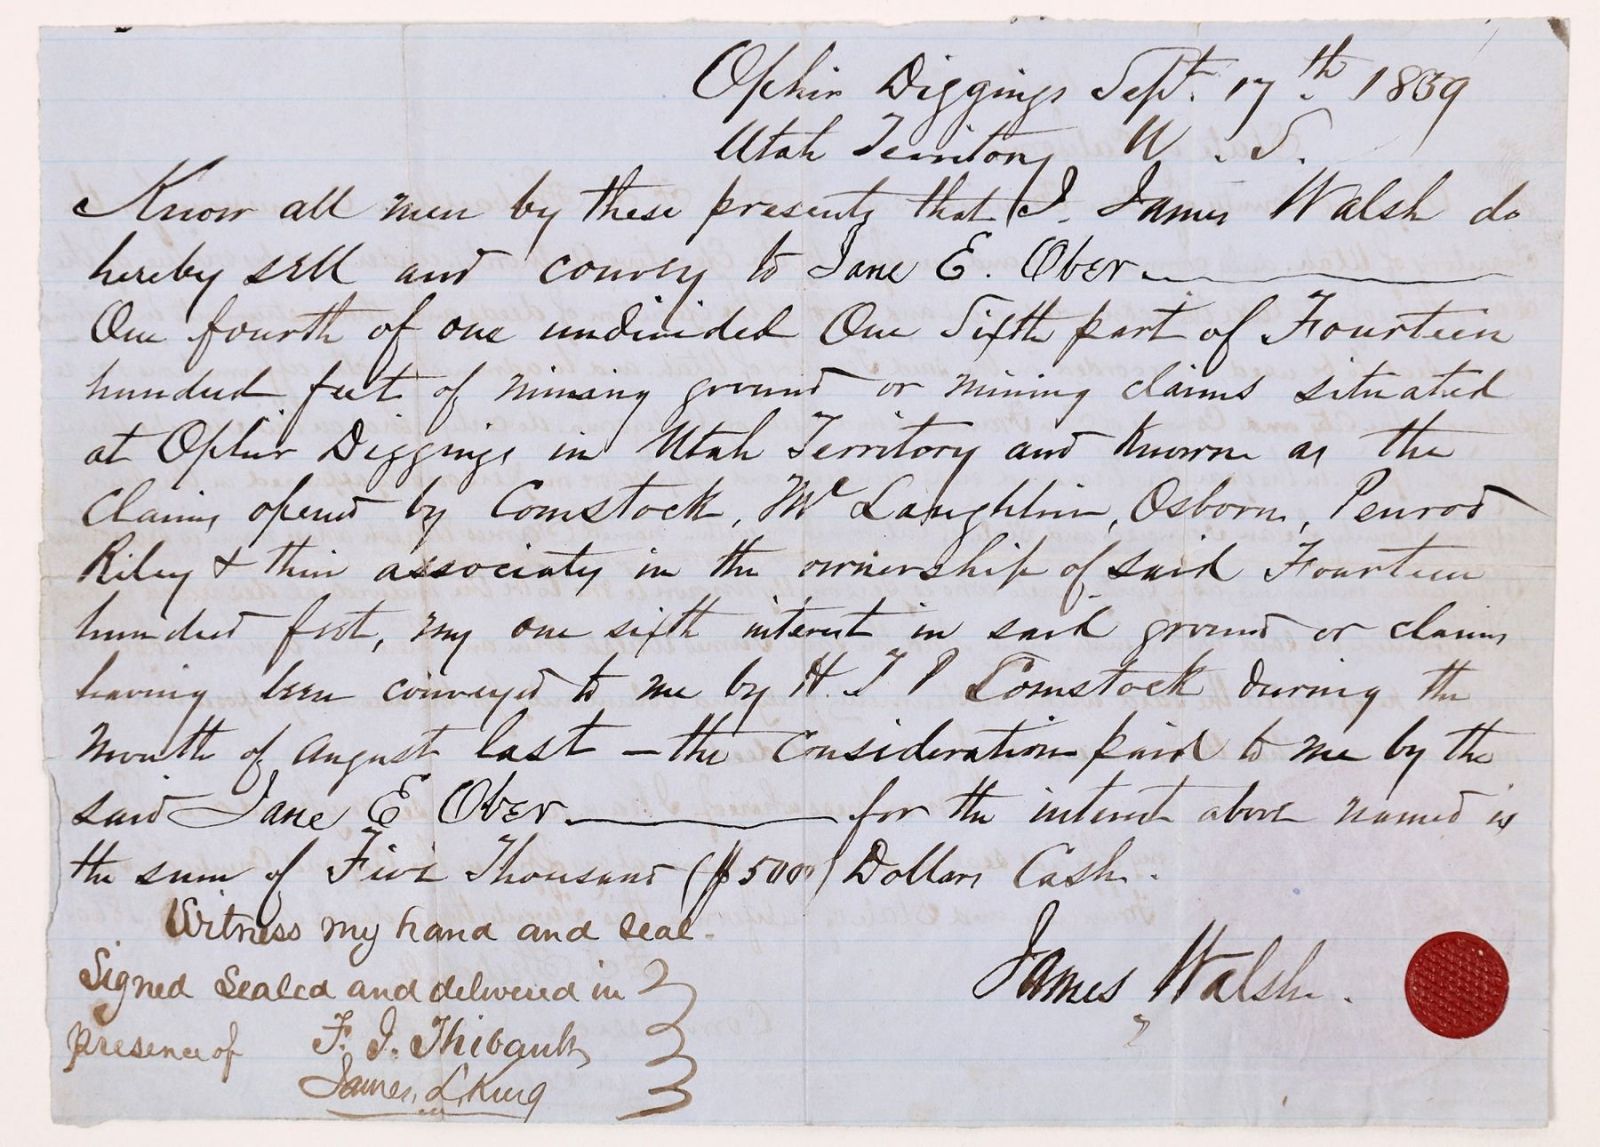 Ophir Diggings Sept. 17th. 1859
Utah Territory U. S.
Know all men by these presents that I. James Walsh do
hereby sell and convey to Jane E. Ober
One fourth of one undivided One Sixth part of Fourteen
hundred feet of mining ground or mining claims situated
at Ophir Diggings in Utah Territory and known as the
Claims opened by Comstock, Mc Laughlin, Osborn, Penrod
Riley & their associates in the ownership of said Fourteen
hundred feet, my one sixth interest in said ground or claims
having been conveyed to me by H. T P Comstock during the
month of August last — the consideration paid to me by the
said Jane E Ober for the interest above named is
the sum of Five Thousand ($5000) Dollars Cash.
Witness my hand and seal.
Signed Sealed and delivered in
presence of F. J. Thibault
James L. King
James Walsh.